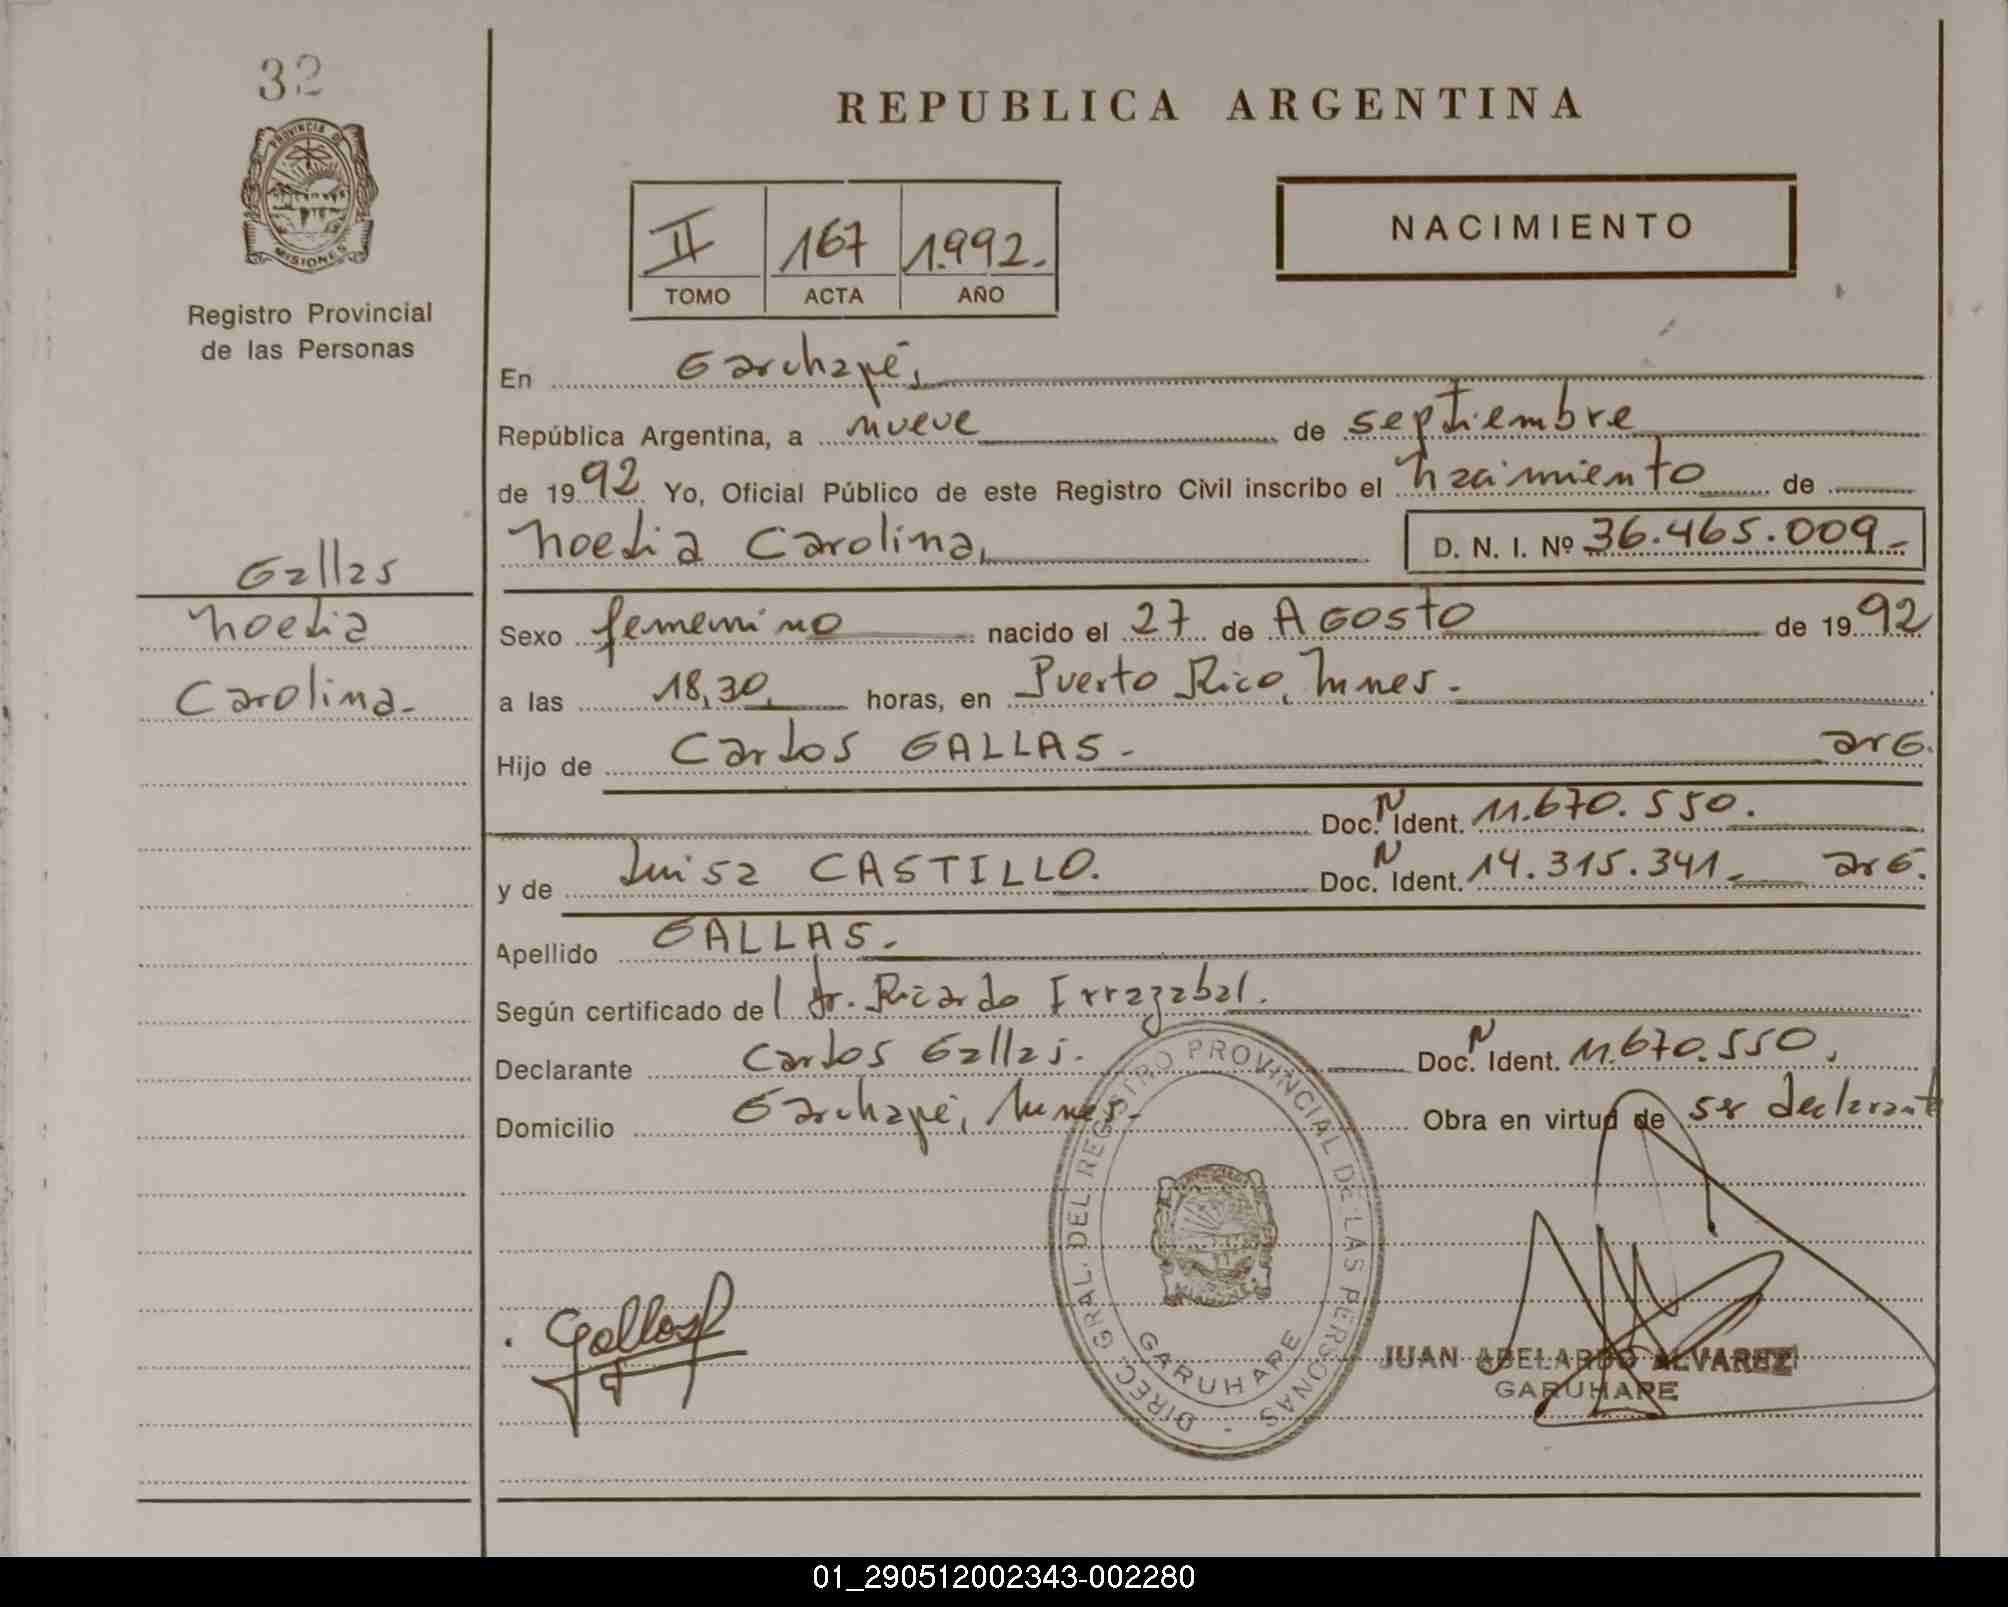 32
PROVINCIA DE
MISIONES
Registro Provincial
de las Personas
Gallas
Noelia
Carolina.
REPUBLICA ARGENTINA
II 167 1.992.
TOMO ACTA AÑO
NACIMIENTO
En Garuhapé,
República Argentina, a nueve de septiembre
de 1992 Yo, Oficial Público de este Registro Civil inscribo el nacimiento de
Noelia Carolina, D. N. I. Nº 36.465.009-
Sexo femenino nacido el 27 de AGOSTO de 1992
a las 18,30, horas, en Puerto Rico, Mnes.
Hijo de Carlos GALLAS. arG.
Doc. N Ident. 11.670.550.
y de Luisa CASTILLO. Doc. N Ident. 14.315.341- arG.
Apellido GALLAS.
Según certificado del dr. Ricardo Irrazabal.
Declarante Carlos Gallas. Doc. N Ident. 11.670.550,
Domicilio Garuhapé, Mnes. Obra en virtud de ser declarante
DIREC. GRAL. DEL REGISTRO PROVINCIAL DE LAS PERSONAS -
GARUHAPE
Gallas
JUAN ABELARDO ALVAREZ
GARUHAPE
01_290512002343-002280